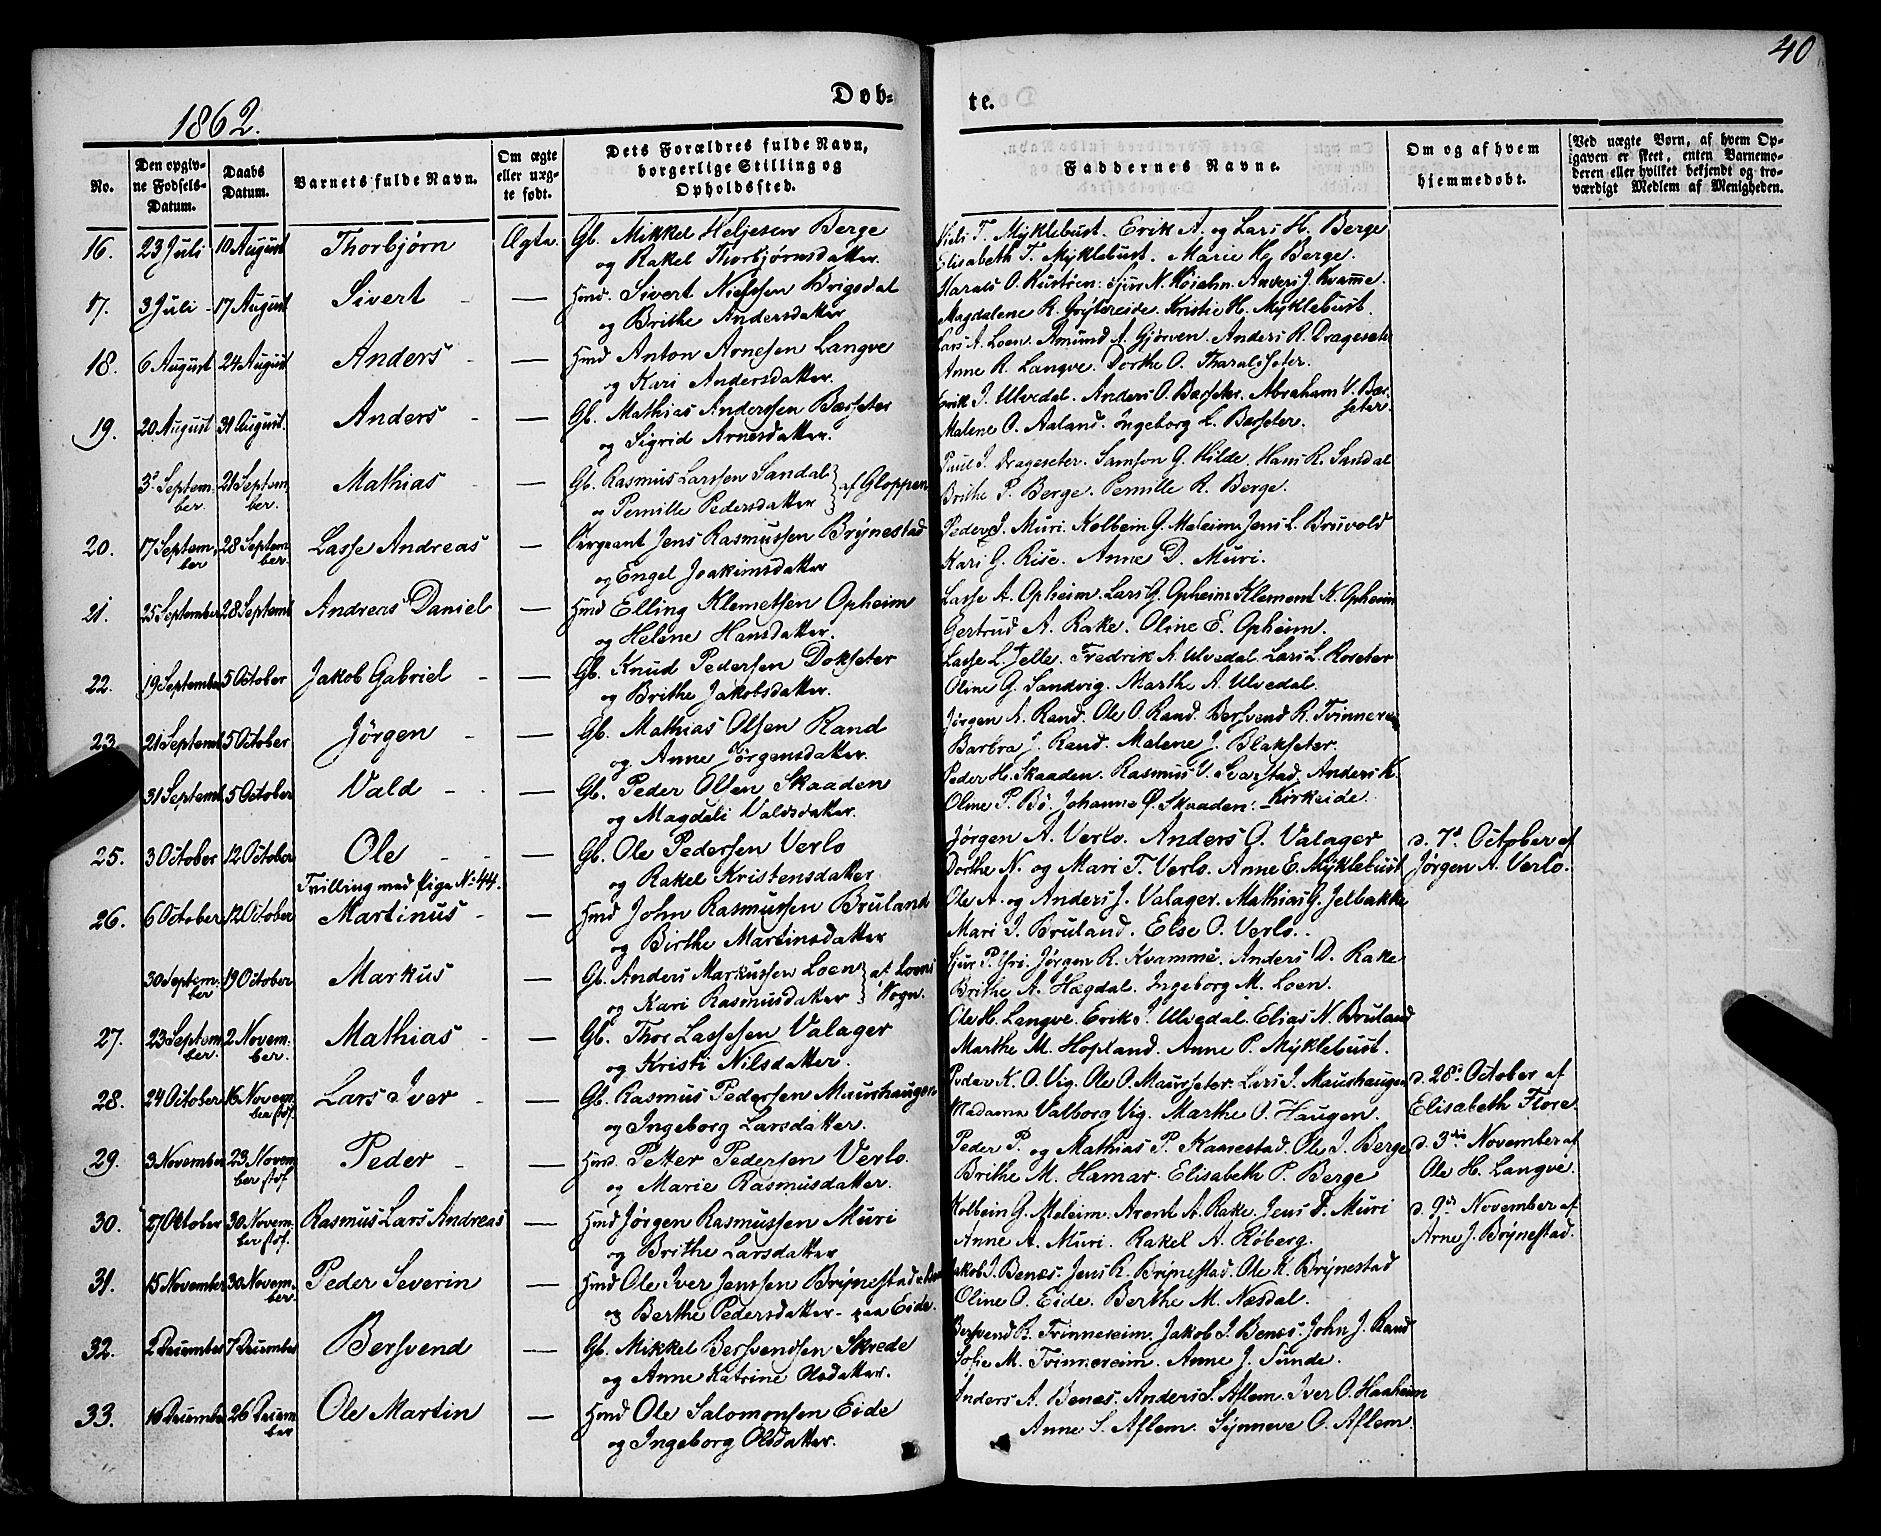 40
1862.
Døb-
te.
No.
Den opgiv-
ne Fødsels-
Datum.
Daabs
Datum.
Barnets fulde Navn.
Om ægte
eller uæg-
te født.
Dets Forældres fulde Navn,
borgerlige Stilling og
Opholdssted.
Faddernes Navne.
Om og af hvem
hjemmedøbt.
Ved uægte Børn, af hvem Op-
gaven er skeet, enten Barnemo-
deren eller hvilket bekjendt og tro-
værdigt Medlem af Menigheden.
16. 23 Juli 10 August Thorbjørn Ægte. Gb. Mikkel Heljesen Berge Niels T. Myklebust. Erik A. og Lars H. Berge
og Rakel Thorbjørnsdatter. Elisabeth T. Myklebust. Marie H. Berge.
17. 3 Juli - 17 August Sivert - — Hmd. Sivert Nielssen Brigsdal Harald O. Sjur N. Anders J. Kvamme.
og Brithe Andersdatter Magdalene R. Gryttereide. Kristie H. Myklebust.
18. 6 August 24 August Anders - — Hmd Anton Arnesen Langve Lars A. Loen. Amund A. Gjørven. Anders R. Drageseter
og Kari Andersdatter. Anne R. Langve. Dorthe O. Tharaldseter.
19. 20 August 31 August. Anders - — Gb. Mathias Anderssen Bærseter Erik J. Ulvedal. Anders O. Bærseter. Abraham V. Bær-
seter.
og Sigrid Arnesdatter. Malene O. Aaland. Ingeborg L. Bærseter.
3d Septem- 21 Septem- Mathias - — Gb. Rasmus Larssen Sandal } af Gloppen Paul J. Drageseter. Samson G. Hilde. Hans R. Sandal
ber. ber. og Pernille Pedersdatter Brithe P. Berge. Pernille R. Berge.
20. 17 Septem- 28 Septem- Lasse Andreas — Sergeant Jens Rasmussen Brynestad Peder J. Muri. Kolbein G. Meleim. Jens L. Bruvold
ber ber. og Engel Joakimsdatter Kari G. Rise. Anne D. Muri.
21. 25 September 28 Septemb Andreas Daniel — Hmd Elling Klemetsen Opheim Lasse A. Opheim. Lars G. Opheim. Klement K. Opheim
og Helene Hansdatter. Gertrud A. Rake. Oline E. Opheim.
22. 19 September 5 October Jakob Gabriel - — Gb. Knud Pedersen Dokseter Lasse L. Jelle. Fredrik A. Ulvedal. Lars L. Roseter
og Brithe Jakobsdatter. Oline G. Sandvig. Marthe A. Ulvedal.
23. 21 Septemb 5 October Jørgen - — Gb. Mathias Olsen Rand Jørgen A. Rand. Ole O. Rand. Bersvend R. Tvinnerei
og Anne Jørgensdatter. Barbra J. Rand. Malene J. Blakseter.
31 Septemb 5 October Vald - - — Gb. Peder Olsen Skaaden Peder H. Skaaden. Rasmus V. Svarstad. Anders K.
og Magdeli Valdsdatter. Oline P. Bø. Johanne Ø. Skaaden. Kirkeide.
25. 3 October 12 October Ole - - — Gb. Ole Pedersen Verlo Jørgen A. Verlo. Anders O. Valager d. 7d October af
Tvilling med Pige No 44. og Rakel Kristensdatter Dorthe N. og Mari T. Verlo. Anne E. Myklebust Jørgen A. Verlo.
26. 6 October 12 October Martinus - — Hmd John Rasmussen Bruland Ole A. og Anders J. Valager. Mathias G. Jelbakke
og Birthe Martinsdatter Mari J. Bruland. Else O. Verlo.
30 Septem- 19 October Markus — Gb. Anders Markussen Loen } af Loens Sjur P. Yri. Jørgen R. Kvamme. Anders D. Rake
ber og Kari Rasmusdatter Sogn. Brithe A. Hægdal. Ingeborg M. Loen.
27. 23 Septem- 2 Novem- Mathias - — Gb. Thor Lassesen Valager Ole H. Langve. Erik J. Ulvedal. Elias N. Bruland
ber. ber. og Kristi Nilsdatter. Marthe M. Hopland. Anne P. Myklebust.
28. 24 October 16 Novem- Lars Iver - — Gb. Rasmus Pedersen Maurhaugen Peder K. O. Vig. Ole O. Maurseter. Lars J. Maurhaugen d. 28d October af
ber og Ingeborg Larsdatter. Madame Valborg Vig. Marthe O. Haugen. Elisabeth Flore.
29. 3 November 23 Novem- Peder - — Hmd. Petter Pedersen Verlo. Peder P. og Mathias P. Kanestad. Ole J. Berge d. 3die November af
ber og Marie Rasmusdatter. Brithe M. Hamar. Elisabeth P. Berge Ole H. Langve.
30. 27 Oktober 30 Novem- Rasmus Lars Andreas — Hmd Jørgen Rasmussen Muri Kolbein G. Meleim. Arent A. Rake. Jens D. Muri d. 9de November af
ber og Brithe Larsdatter Anne A. Muri. Rakel A. Roberg. Arne J. Brynestad.
31. 15 November 30 Novem- Peder Severin — Hmd Ole Iver Jenssen Brynestad Jakob J. Benæs. Jens R. Brynestad. Ole K. Brynestad
ber. og Berthe Pedersdatter - paa Eide. Oline O. Eide. Berthe M. Næsdal.
32. 2 December 7 December Bersvend — Gb. Mikkel Bersvendsen Skrede Bersvend R. Tvinnereim. Jakob J. Benæs. John J. Rand
og Anne Katrine Olsdatter. Sofie M. Tvinnereim. Anne J. Sunde.
33. 10 December 26 Decem- Ole Martin — Hmd Ole Salomonsen Eide Anders A. Benæs. Anders S. Aflem. Iver O. Haaheim
ber og Ingeborg Olsdatter. Anne S. Aflem. Synneve O. Aflem.